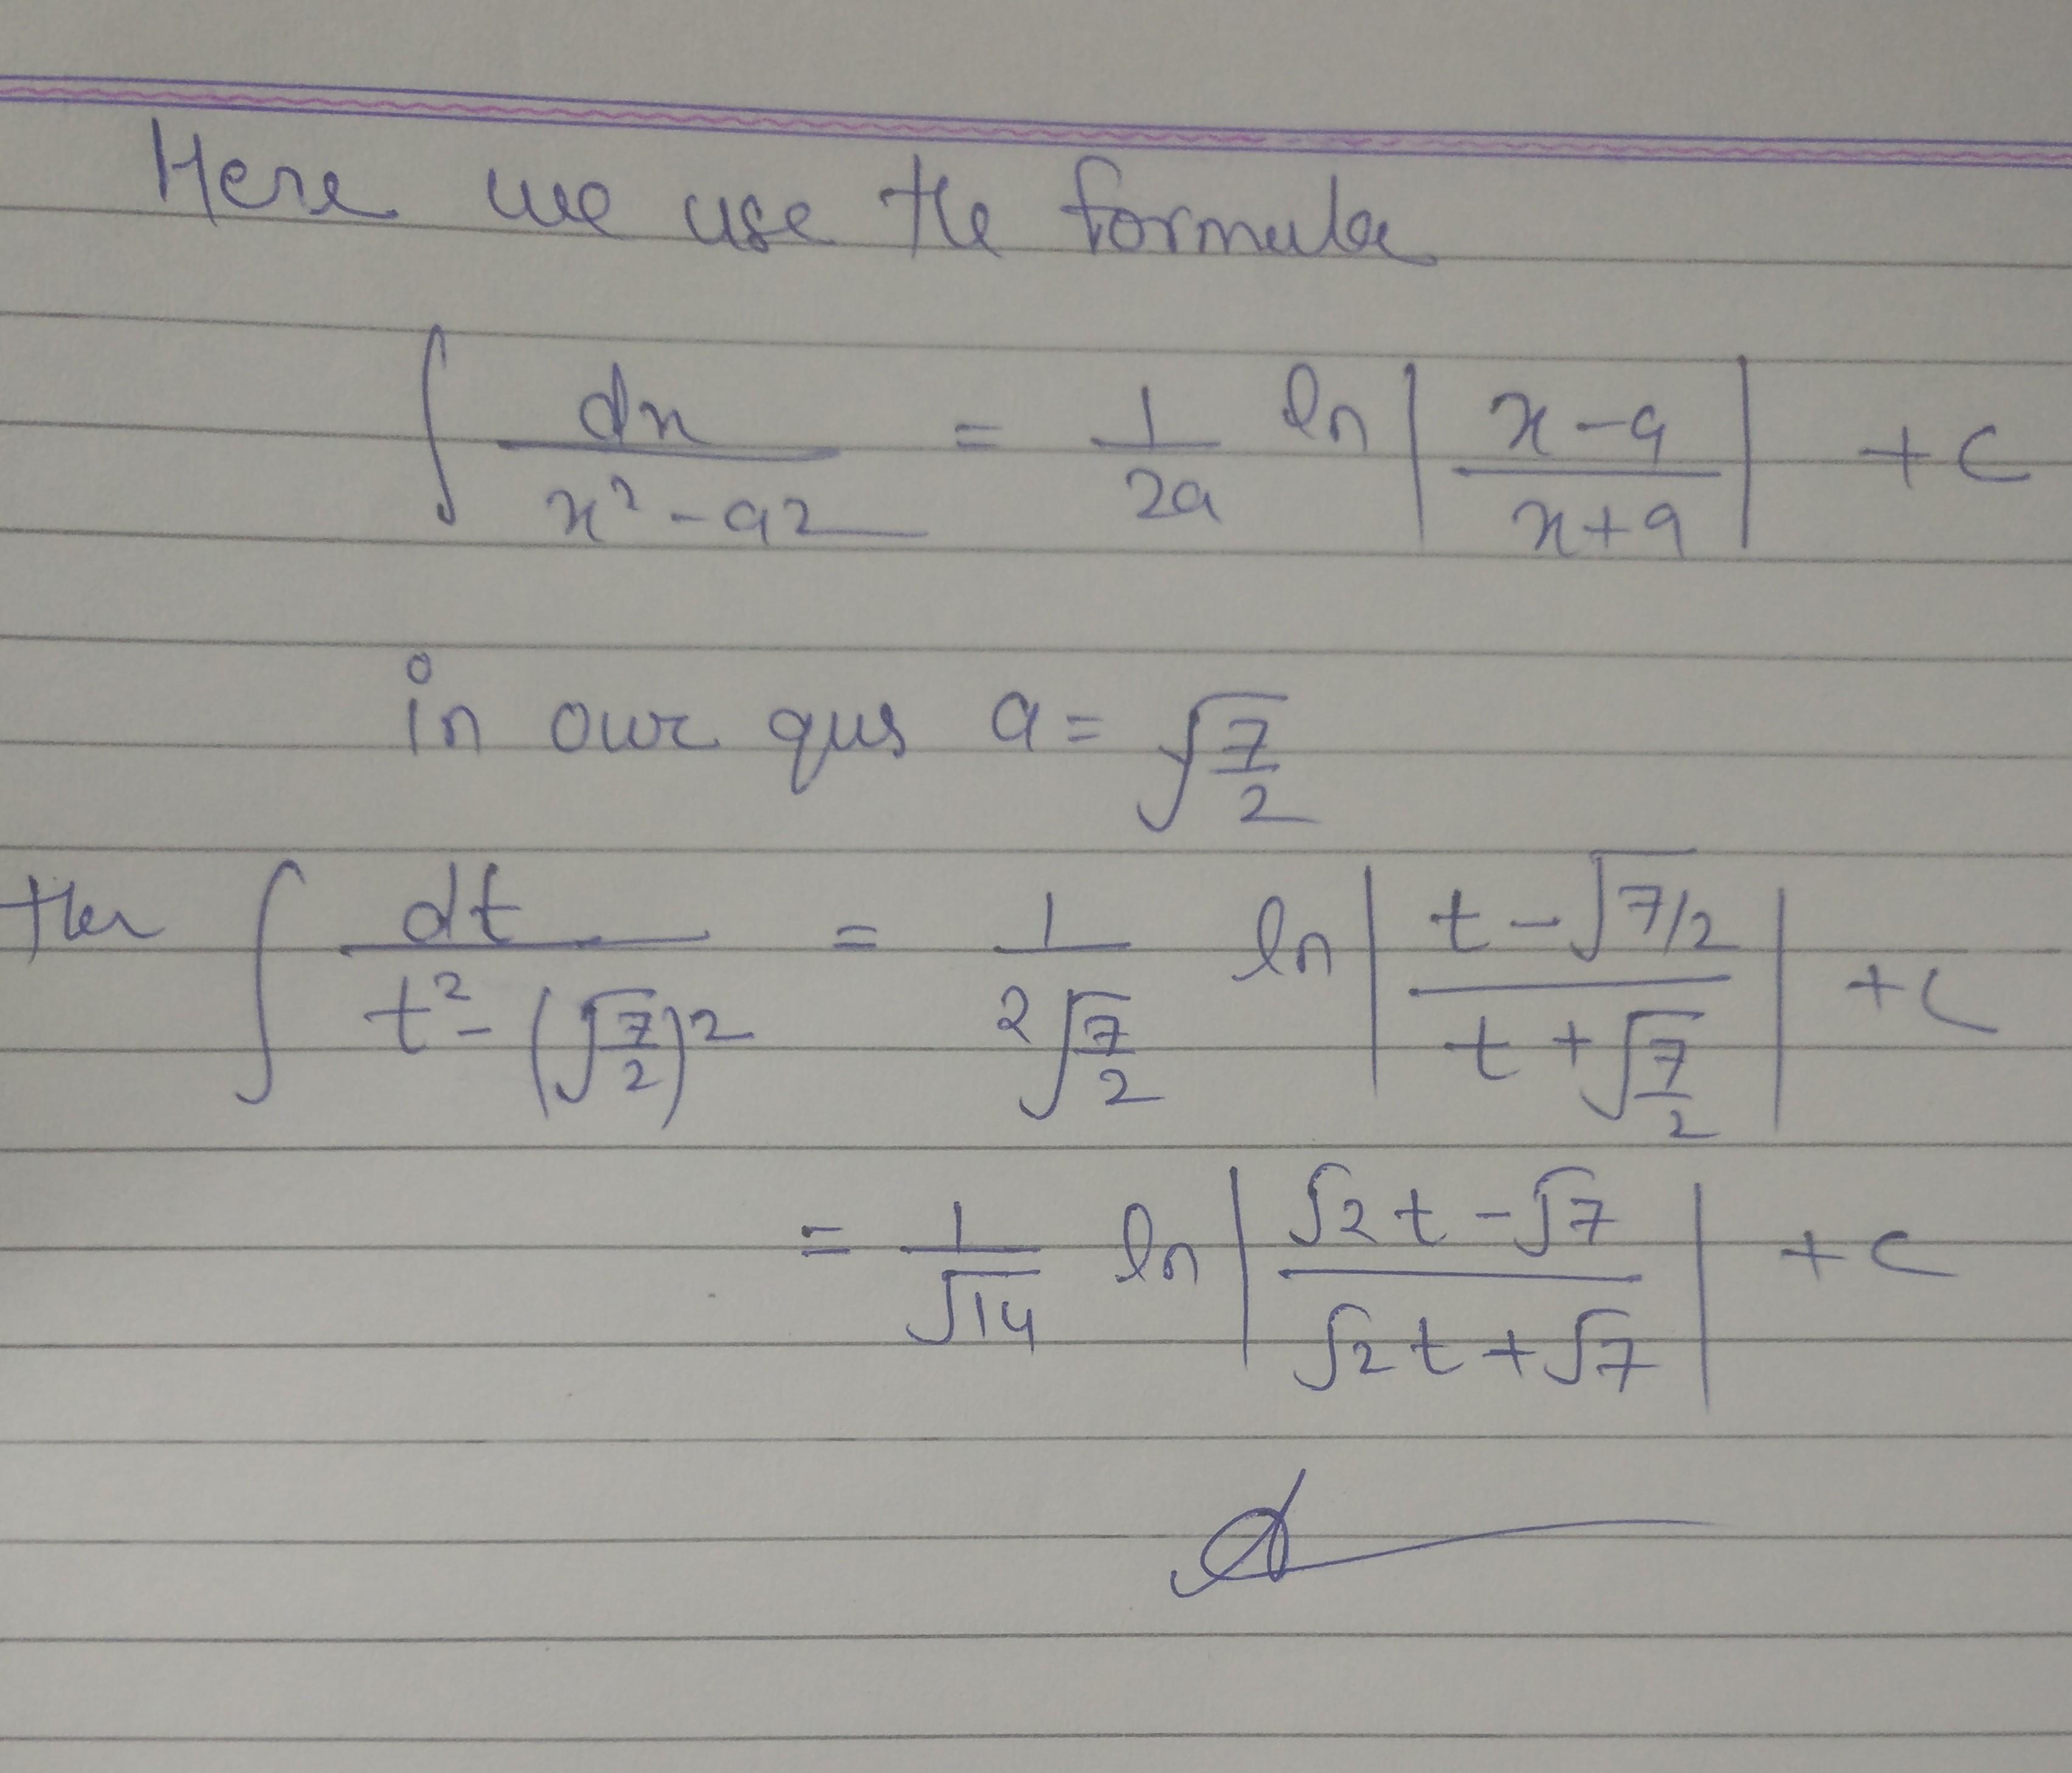 Here we use the formula
∫ dx / (x² - a²) = 1/2a ln | (x-a) / (x+a) | + c
in our qus a = √(7/2)
then ∫ dt / (t² - (√(7/2))²) = 1 / (2√(7/2)) ln | (t - √(7/2)) / (t + √(7/2)) | + c
= 1/√14 ln | (√2t - √7) / (√2t + √7) | + c